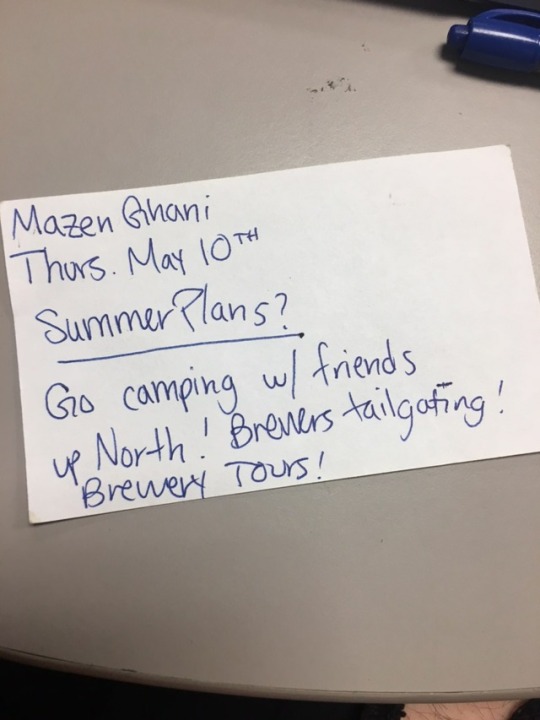 Mazen Ghani
Thurs. May 10TH
Summer Plans?
Go camping w/ friends
up North! Brewers tailgating!
Brewery Tours!